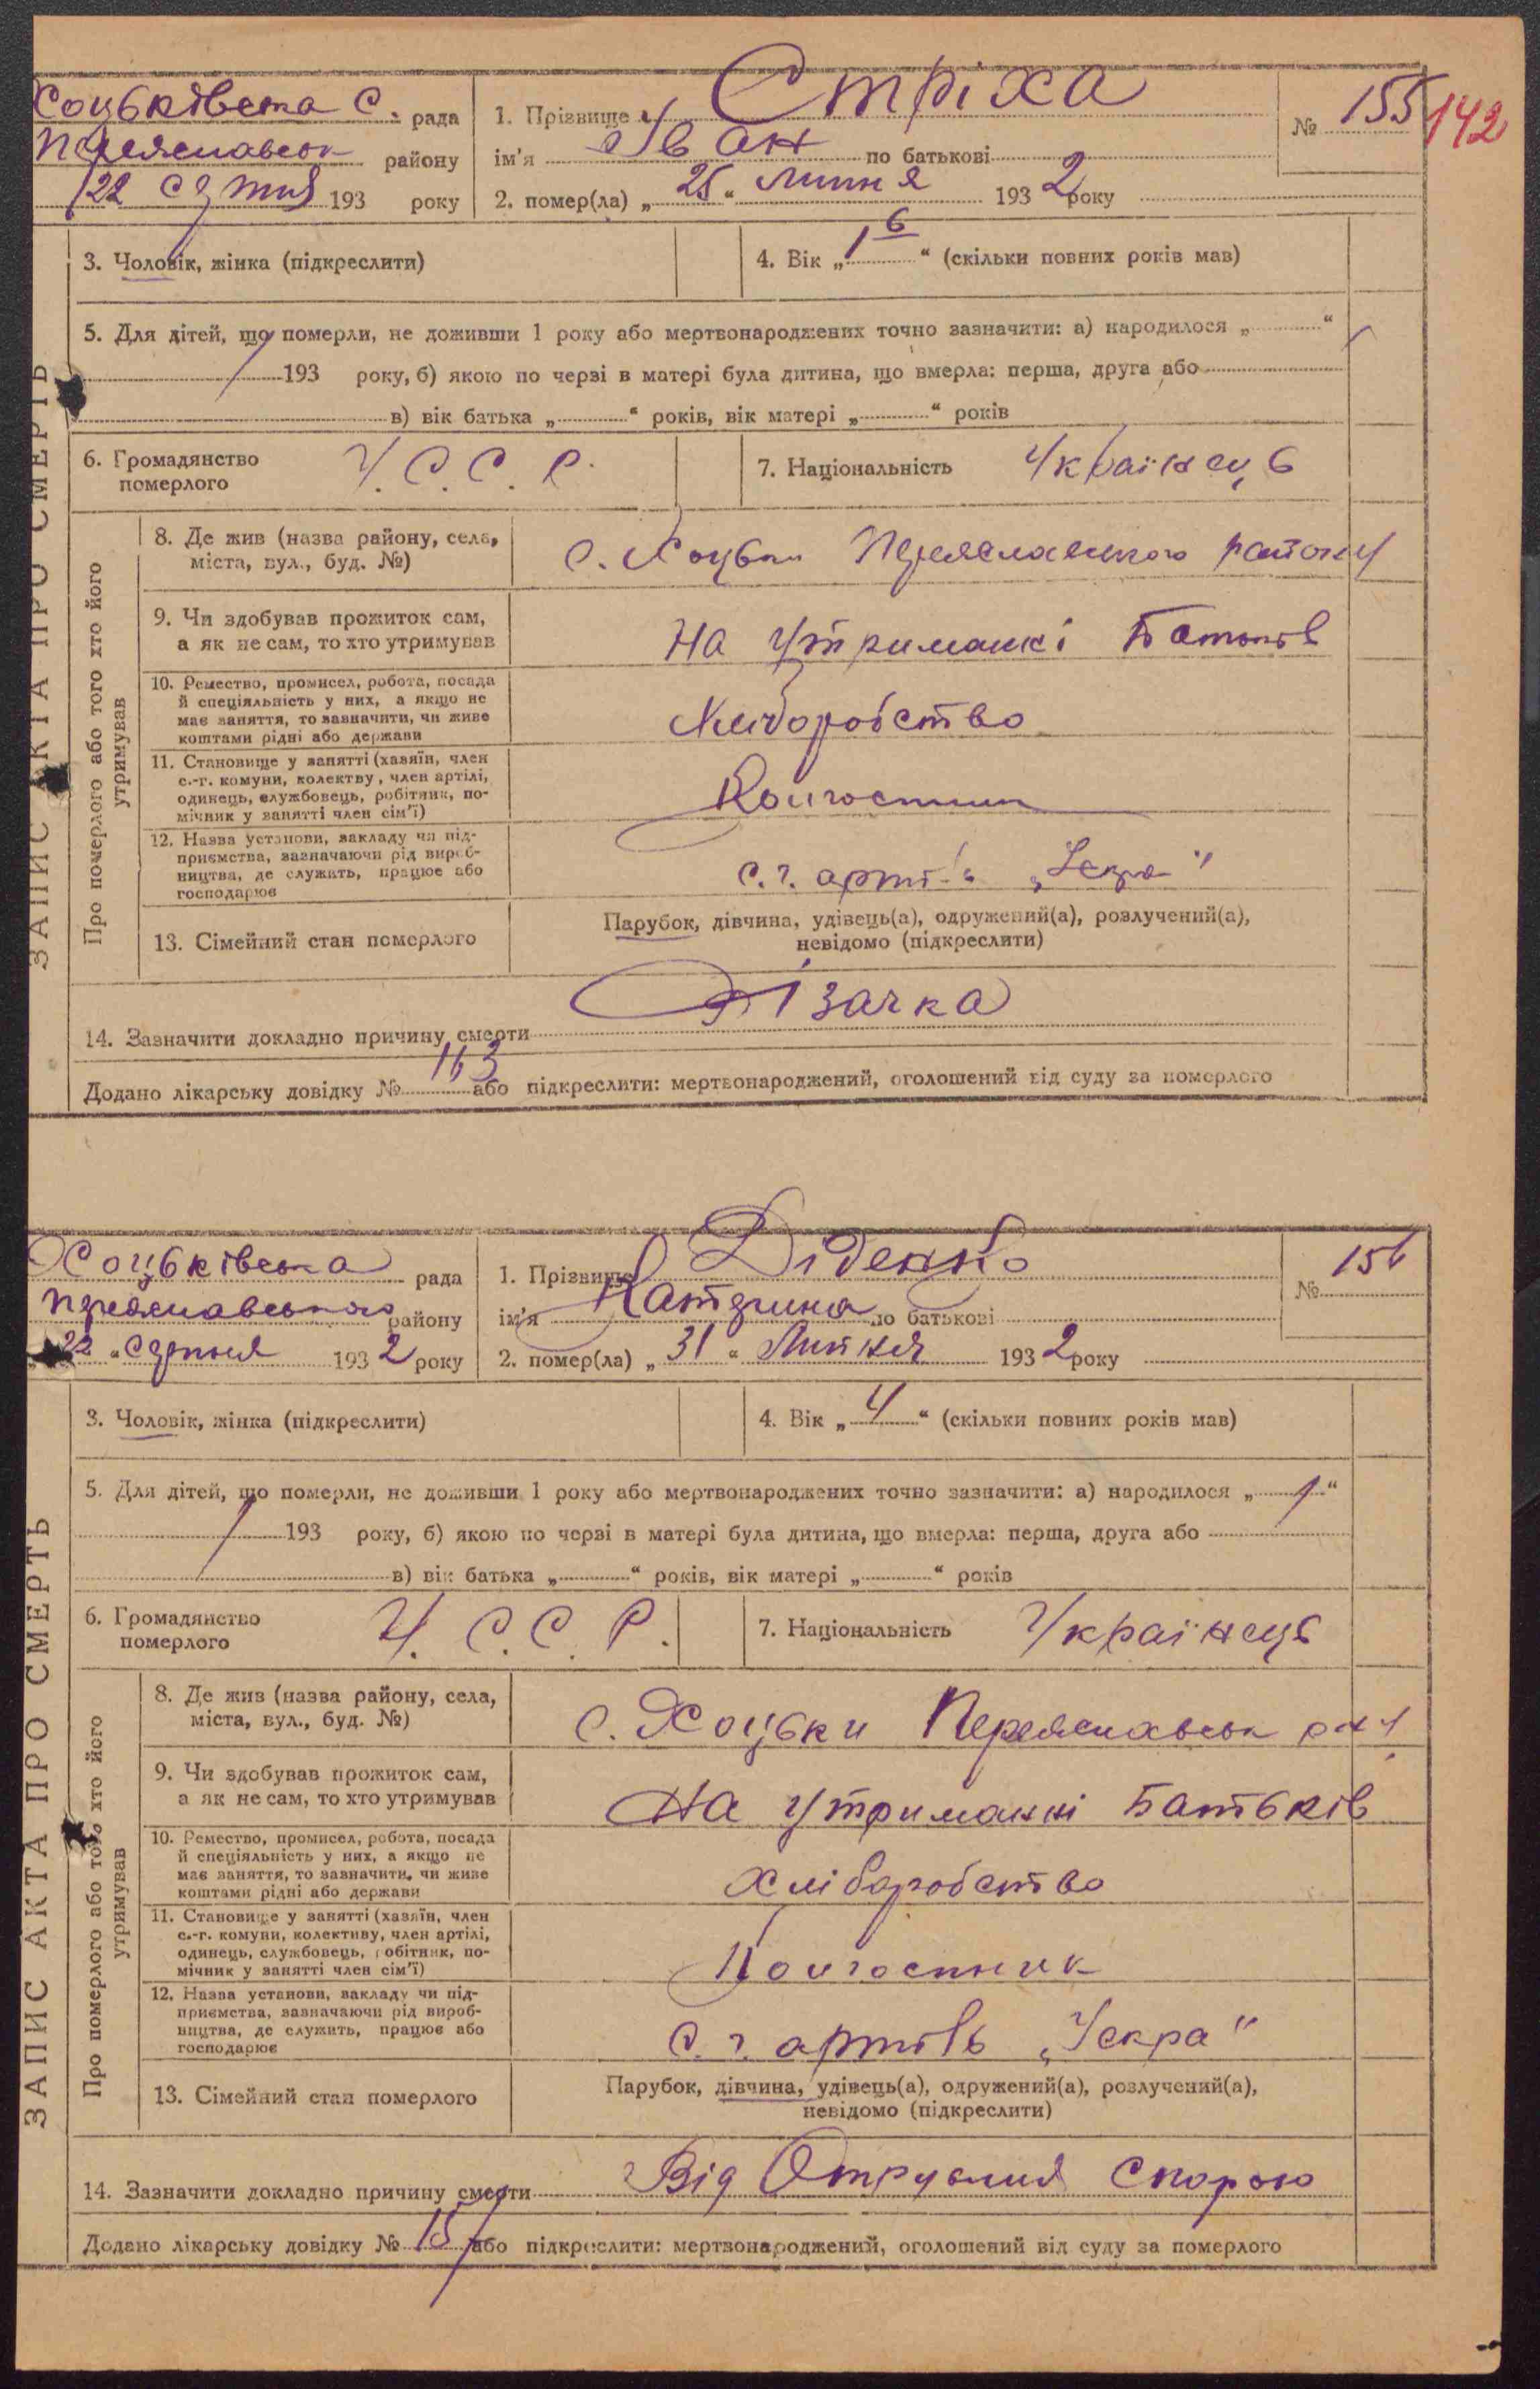 Хоцьківська С. рада
Переяславськ району
22 193 року
1. Прізвище Стріха
ім'я Іван по батькові
2. помер(ла) „ 25 “ липня 193 2 року
№ 155
142
3. Чоловік, жінка (підкреслити)
4. Вік „ 1 6 “ (скільки повних років мав)
5. Для дітей, що померли, не доживши 1 року або мертвонароджених точно зазначити: а) народилося „ “
193 року, б) якою по черзі в матері була дитина, що вмерла: перша, друга або
в) вік батька „ “ років, вік матері „ “ років
6. Громадянство
померлого
У. С. С. Р.
7. Національність Українець
ЗАПИС АКТА ПРО СМЕРТЬ
Про померлого або того хто його
утримував
8. Де жив (назва району, села,
міста, вул., буд. №)
с. Хоцьки Переяславського району
9. Чи здобував прожиток сам,
а як не сам, то хто утримував
На утриманні Батьків
10. Ремество, промисел, робота, посада
й спеціяльність у них, а якщо не
має заняття, то зазначити, чи живе
коштами рідні або держави
Хліборобство
11. Становище у занятті (хазяїн, член
с.-г. комуни, колектву, член артілі,
одинець, службовець, робітник, по-
мічник у занятті член сім'ї)
Колгоспник
12. Назва установи, закладу чи під-
приємства, зазначаючи рід вироб-
ництва, де служить, працює або
господарює
с. г. артіль „Іскра"
13. Сімейний стан померлого
Парубок, дівчина, удівець(а), одружений(а), розлучений(а),
невідомо (підкреслити)
14. Зазначити докладно причину смерти
Додано лікарську довідку № 163 або підкреслити: мертвонароджений, оголошений від суду за померлого
Хоцьківська рада
Переяславського району
22 “ Серпня 193 2 року
1. Прізвище Діденко
ім'я Катерина по батькові
2. помер(ла) „ 31 “ Липня 193 2 року
№ 156
3. Чоловік, жінка (підкреслити)
4. Вік „ 4 “ (скільки повних років мав)
5. Для дітей, що померли, не доживши 1 року або мертвонароджених точно зазначити: а) народилося „ “
193 року, б) якою по черзі в матері була дитина, що вмерла: перша, друга або
в) вік батька „ “ років, вік матері „ “ років
6. Громадянство
померлого
У. С. С. Р.
7. Національність Українець
ЗАПИС АКТА ПРО СМЕРТЬ
Про померлого або того хто його
утримував
8. Де жив (назва району, села,
міста, вул., буд. №)
с. Хоцьки Переяславськ р-ну
9. Чи здобував прожиток сам,
а як не сам, то хто утримував
На утриманні Батьків
10. Ремество, промисел, робота, посада
й спеціяльність у них, а якщо не
має заняття, то зазначити, чи живе
коштами рідні або держави
Хліборобство
11. Становище у занятті (хазяїн, член
с.-г. комуни, колективу, член артілі,
одинець, службовець, робітник, по-
мічник у занятті член сім'ї)
Колгоспник
12. Назва установи, закладу чи під-
приємства, зазначаючи рід вироб-
ництва, де служить, працює або
господарює
с. г. артіль „Іскра"
13. Сімейний стан померлого
Парубок, дівчина, удівець(а), одружений(а), розлучений(а),
невідомо (підкреслити)
14. Зазначити докладно причину смерти Від Отруєння
Додано лікарську довідку № 157 або підкреслити: мертвонароджений, оголошений від суду за померлого